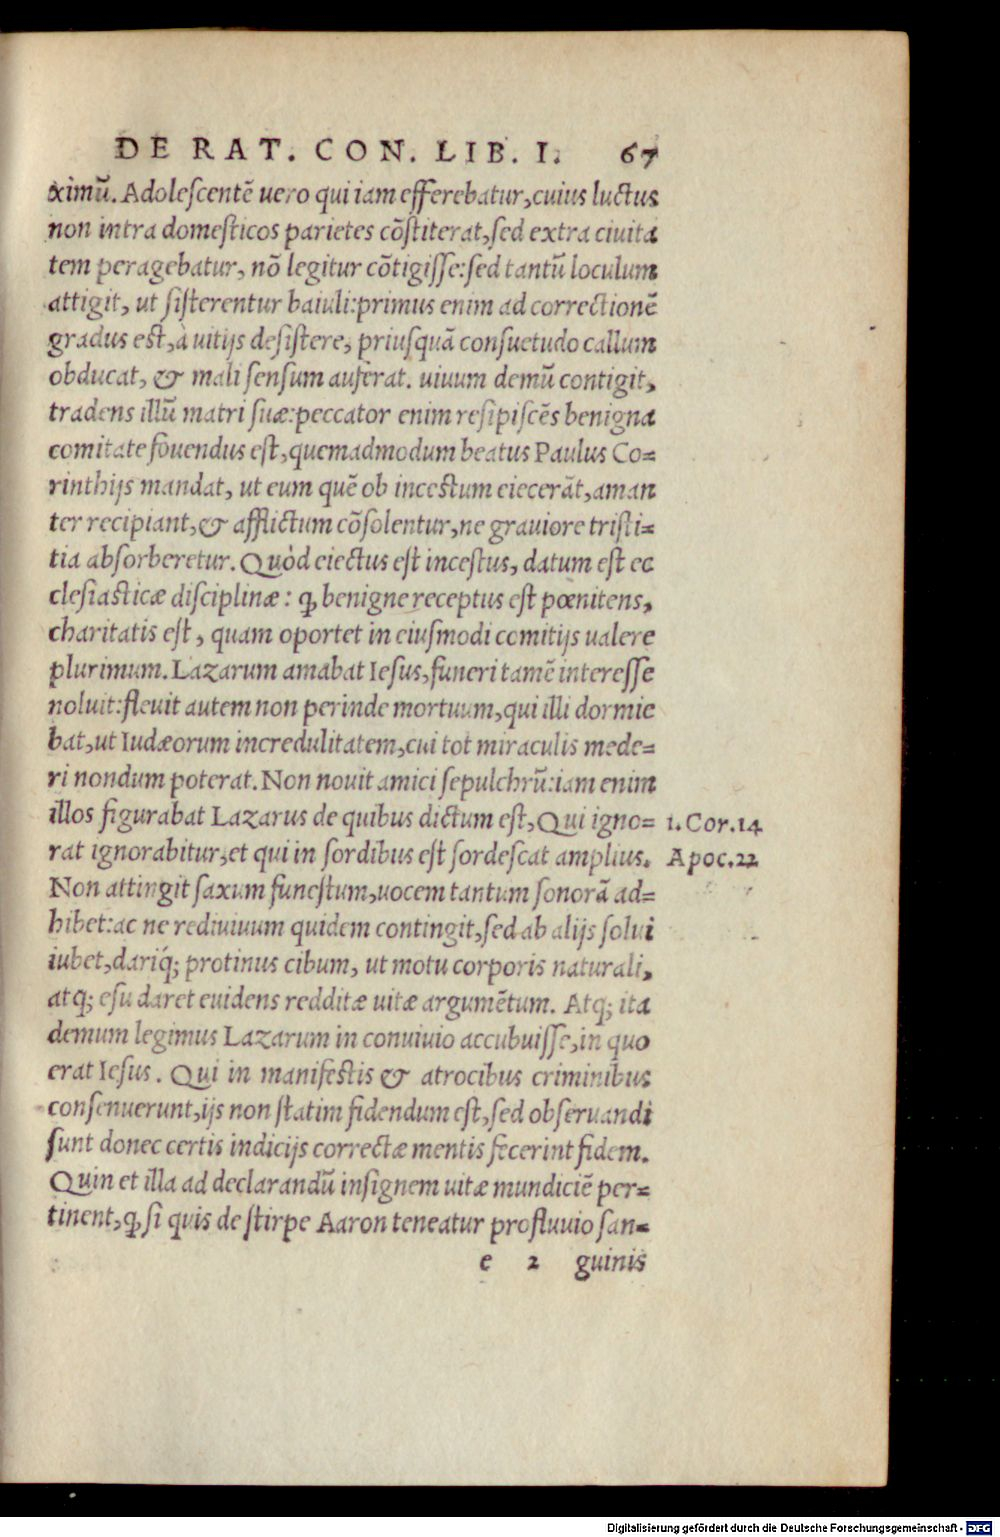 DE RAT. CON. LIB. I. 67
ximū. Adolescentē uero qui iam efferebatur, cuius luctus
non intra domesticos parietes cōstiterat, sed extra ciuita
tem peragebatur, nō legitur cōtigisse: sed tantū loculum
attigit, ut sisterentur baiuli: primus enim ad correctionē
gradus est, à uitijs desistere, priusquā consuetudo callum
obducat, & mali sensum auferat. uiuum demū contigit,
tradens illū matri suæ: peccator enim resipiscēs benigna
comitate fouendus est, quemadmodum beatus Paulus Co=
rinthijs mandat, ut eum quē ob incestum eiecerāt, aman
ter recipiant, & afflictum cōsolentur, ne grauiore tristi=
tia absorberetur. Quòd eiectus est incestus, datum est ec
clesiasticæ disciplinæ: ꝙ benigne receptus est pœnitens,
charitatis est, quam oportet in eiusmodi comitijs ualere
plurimum. Lazarum amabat Iesus, funeri tamē interesse
noluit: fleuit autem non perinde mortuum, qui illi dormie
bat, ut Iudæorum incredulitatem, cui tot miraculis mede=
ri nondum poterat. Non nouit amici sepulchrū: iam enim
illos figurabat Lazarus de quibus dictum est, Qui igno= 1. Cor. 14
rat ignorabitur, et qui in sordibus est sordescat amplius. Apoc. 22
Non attingit saxum funestum, uocem tantum sonorā ad=
hibet: ac ne rediuiuum quidem contingit, sed ab alijs solui
iubet, dariq́; protinus cibum, ut motu corporis naturali,
atq; esu daret euidens redditæ uitæ argumētum. Atq; ita
demum legimus Lazarum in conuiuio accubuisse, in quo
erat Iesus. Qui in manifestis & atrocibus criminibus
consenuerunt, ijs non statim fidendum est, sed obseruandi
sunt donec certis indicijs correctæ mentis fecerint fidem.
Quin et illa ad declarandū insignem uitæ mundiciē per=
tinent, ꝙ si quis de stirpe Aaron teneatur profluuio san=
e 2 guinis
Digitalisierung gefördert durch die Deutsche Forschungsgemeinschaft - DFG